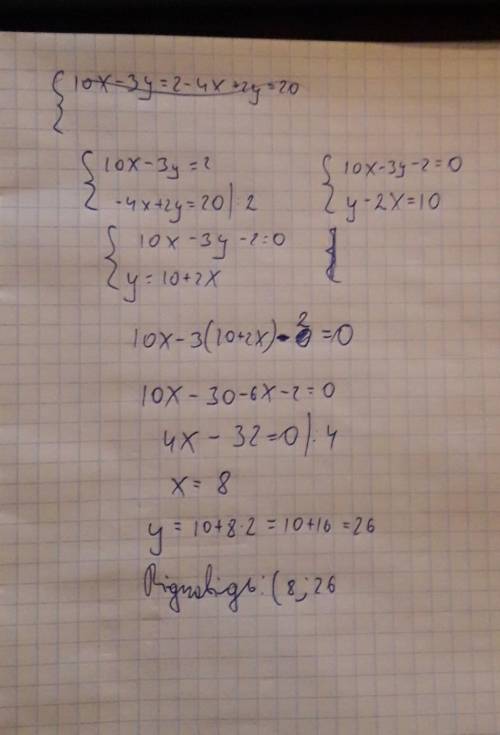 10x-3y=2-4x+2y=20
10x-3y=2
-4x+2y=20|:2
10x-3y-2=0
y-2x=10
10x-3y-2=0
y=10+2x
10x-3(10+2x)-2=0
10x-30-6x-2=0
4x-32=0|:4
x=8
y=10+8·2=10+16=26
Відповідь: (8;26